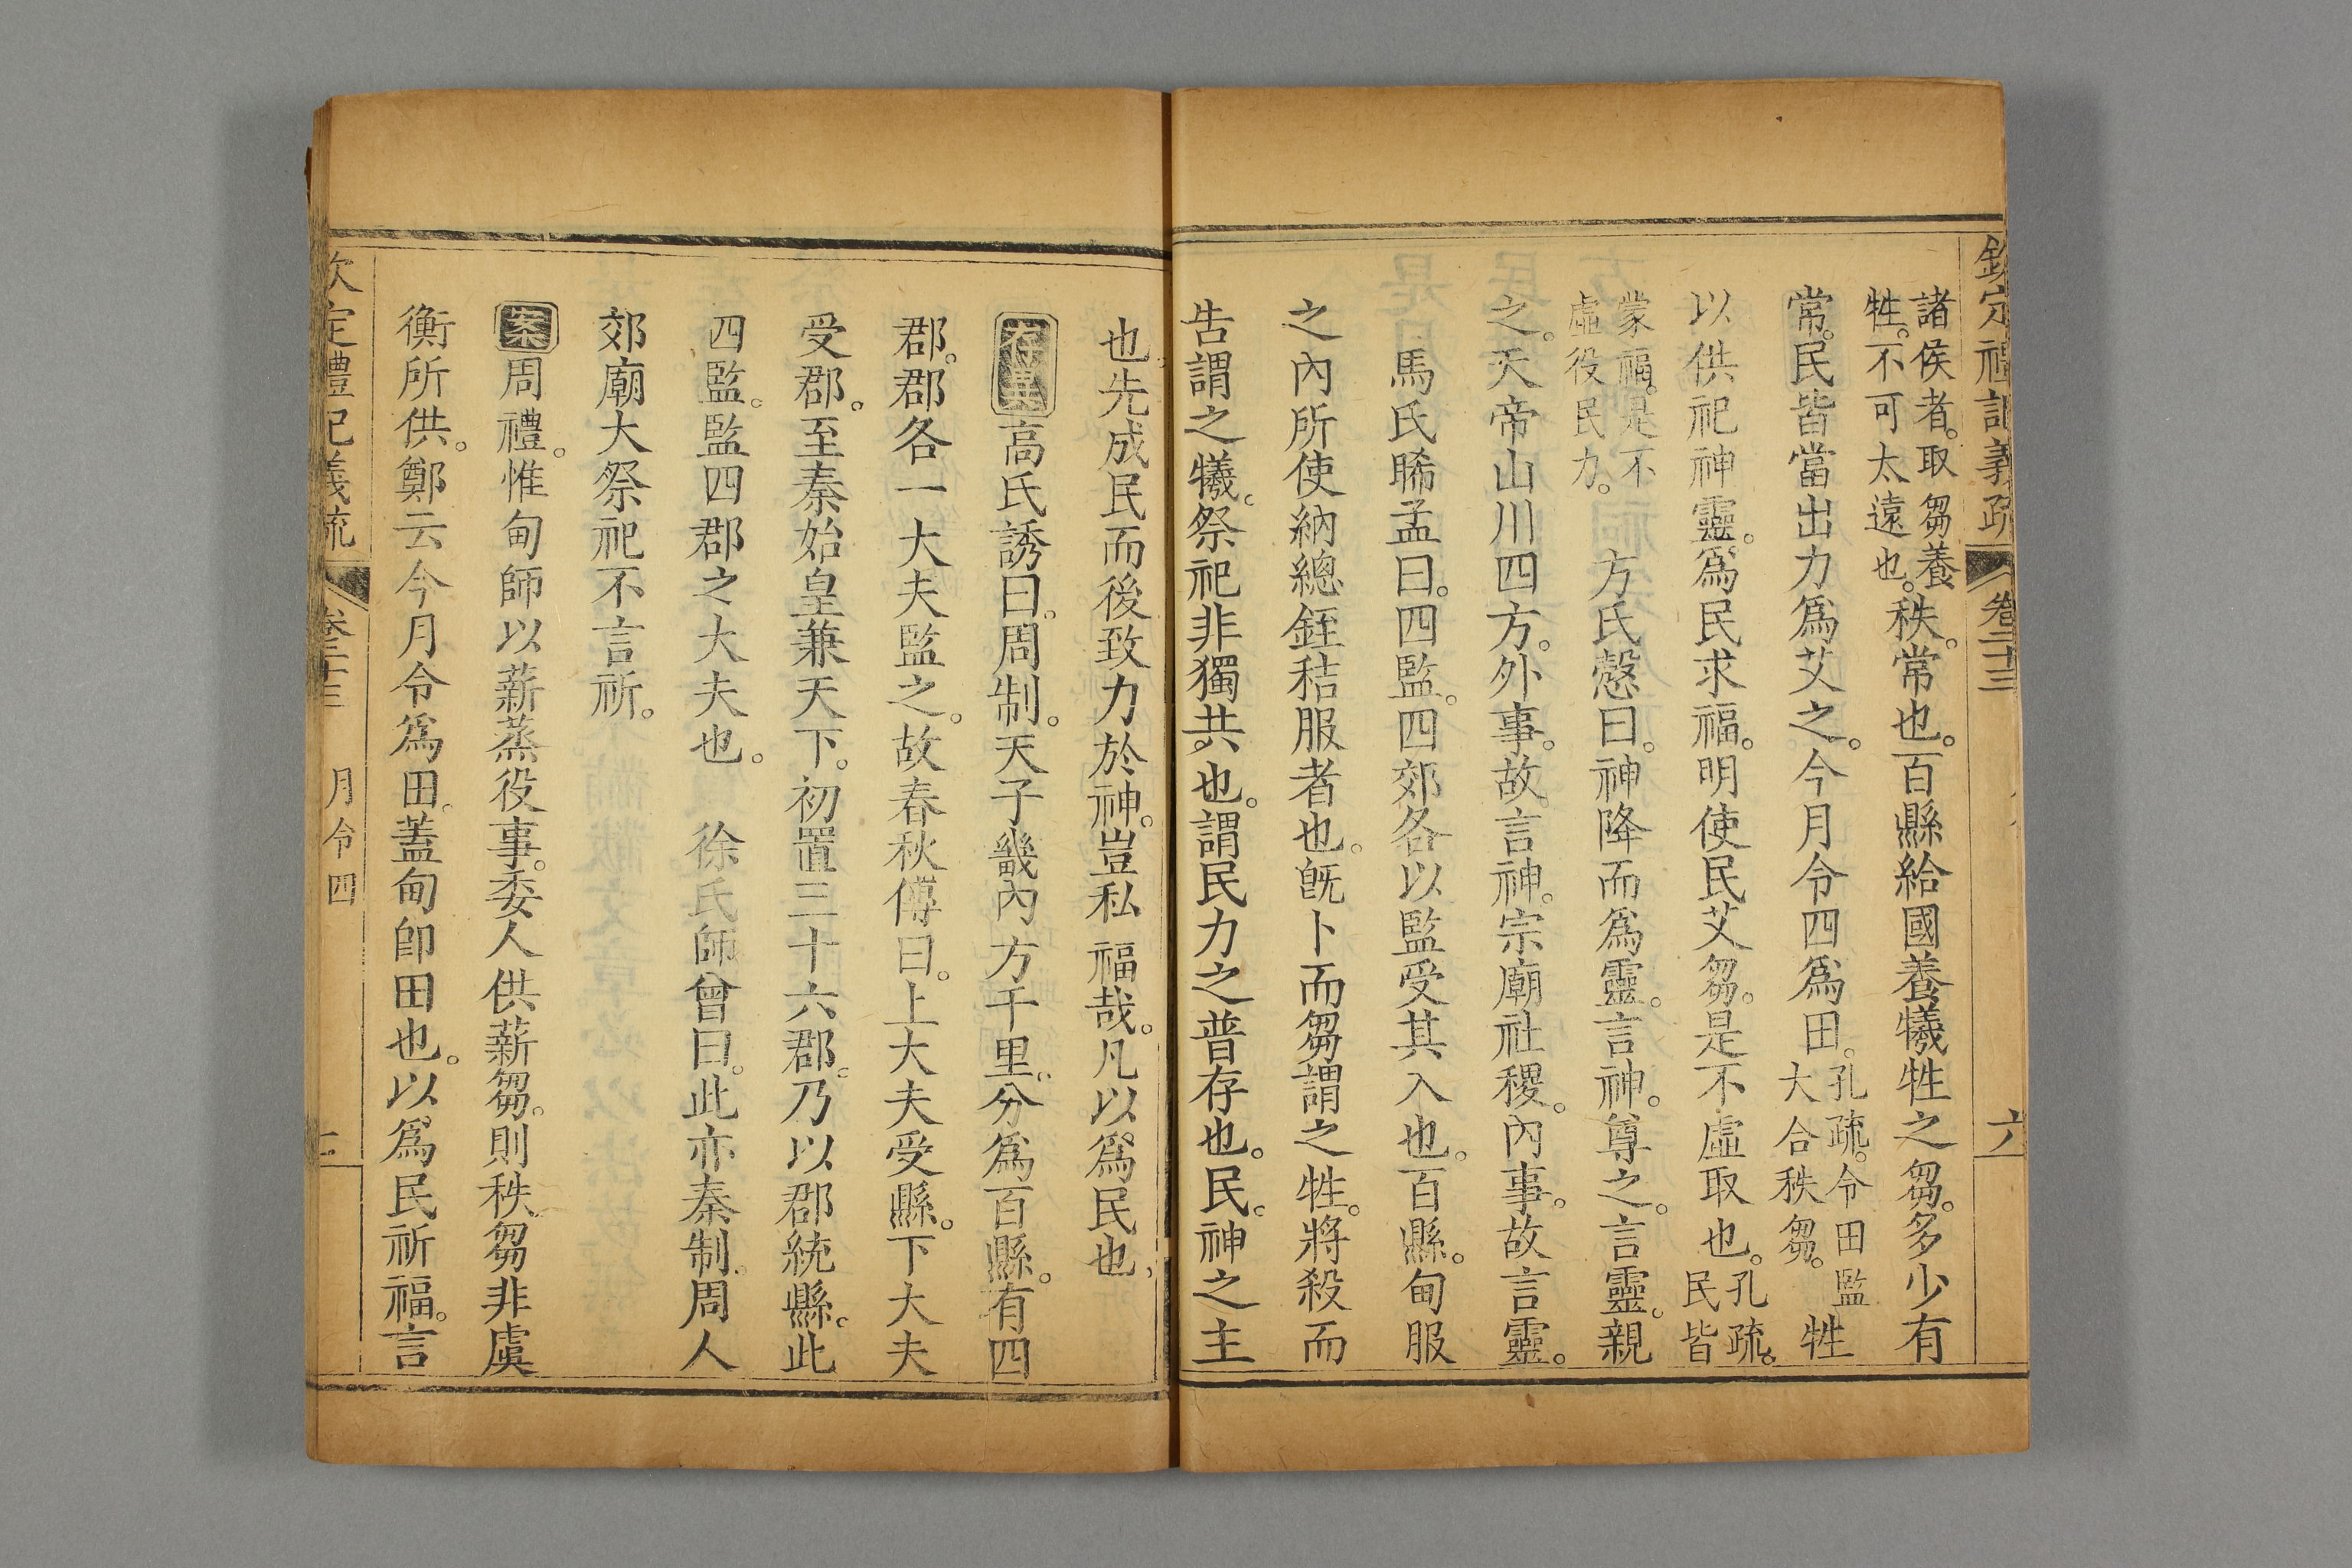 欽定禮記義疏 卷二十三 六
諸侯者。取芻養
牲。不可太遠也。秩。常也。百縣給國養犧牲之芻。多少有
常。民皆當出力爲艾之。今月令四爲田。孔疏。令田監
大合秩芻。牲
以供祀神靈。爲民求福。明使民艾芻。是不虛取也。孔疏。
民皆
蒙福。是不
虛役民力。方氏慤曰。神降而爲靈。言神。尊之。言靈。親
之。天帝山川四方。外事。故言神。宗廟社稷。內事。故言靈。
馬氏晞孟曰。四監。四郊各以監受其入也。百縣。甸服
之內所使納總銍秸服者也。旣卜而芻謂之牲。將殺而
告謂之犧。祭祀非獨共也。謂民力之普存也。民。神之主
也。先成民而後致力於神。豈私福哉。凡以爲民也。
存異高氏誘曰。周制。天子畿內方千里。分爲百縣。有四
郡。郡各一大夫監之。故春秋傳曰。上大夫受縣。下大夫
受郡。至秦始皇兼天下。初置三十六郡。乃以郡統縣。此
四監。監四郡之大夫也。徐氏師曾曰。此亦秦制。周人
郊廟大祭祀不言祈。
案周禮。惟甸師以薪蒸役事。委人供薪芻。則秩芻非虞
衡所供。鄭云今月令爲田。蓋甸卽田也。以爲民祈福。言
欽定禮記義疏 卷二十三 月令四